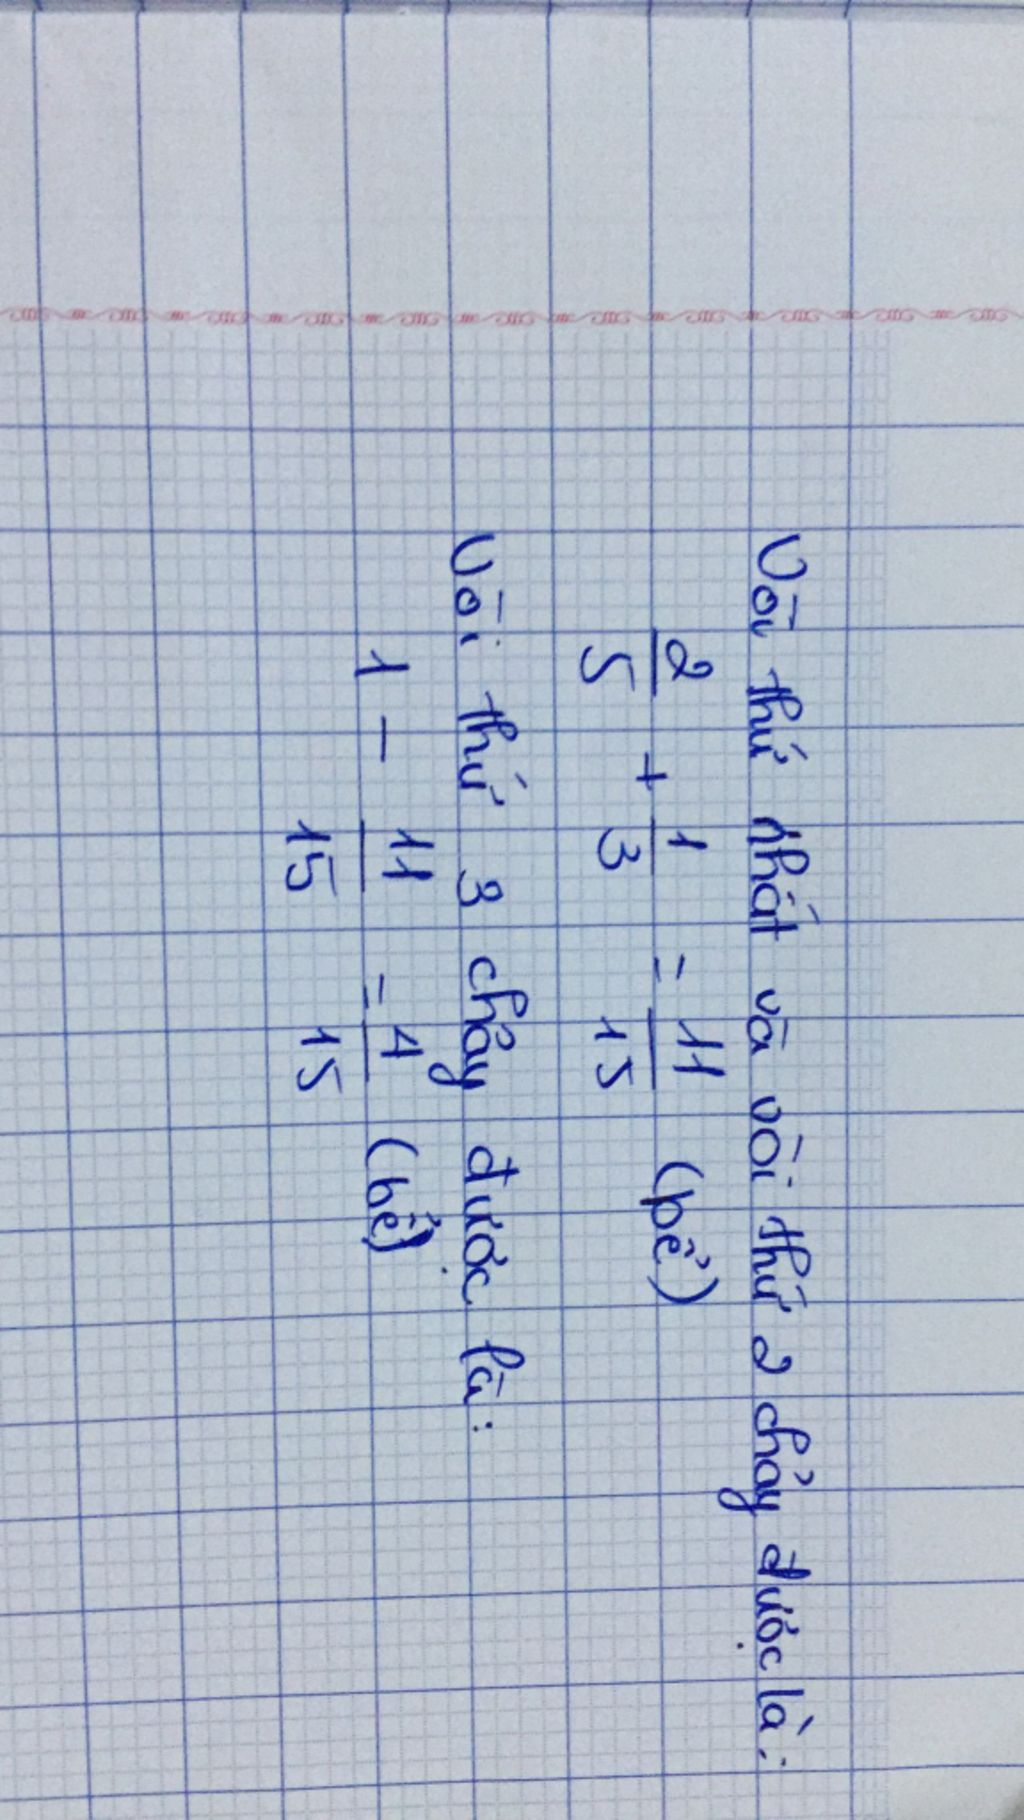 Vòi thứ nhất và vòi thứ 2 chảy được là:
2/5 + 1/3 = 11/15 (bể)
Vòi thứ 3 chảy được là:
1 - 11/15 = 4/15 (bể)